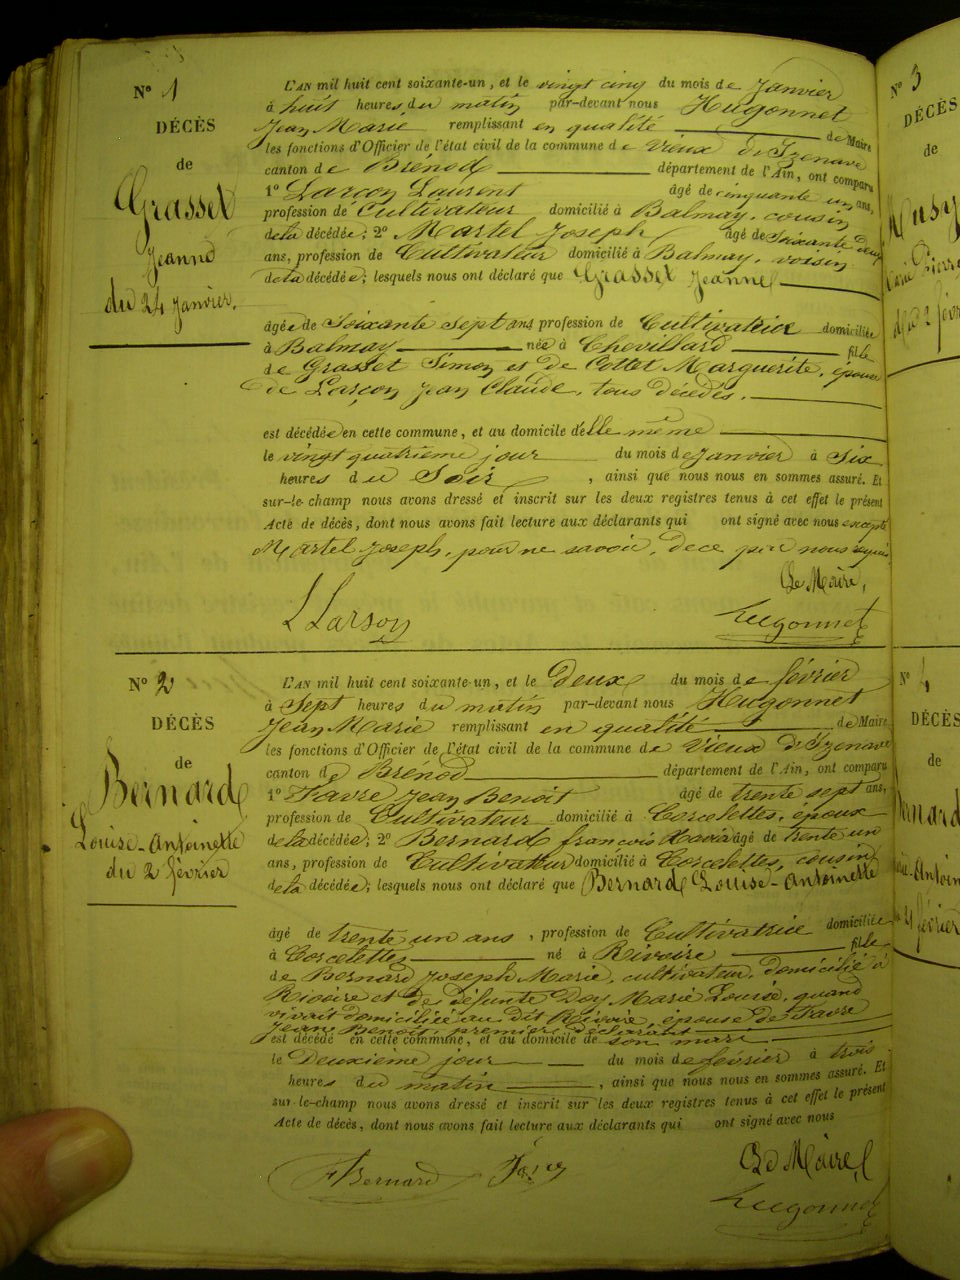 N° 1
DÉCÈS
de
Grasset
Jeanne
du 24 Janvier.
L'AN mil huit cent soixante-un, et le vingt cinq du mois de Janvier
à huit heures du matin par-devant nous Hugonnet
Jean Marie remplissant en qualité de Maire
les fonctions d'Officier de l'état civil de la commune de Vieux d'Izenave
canton de Brénod département de l'Ain, ont comparu
1° Larçon Laurent âgé de cinquante un ans,
profession de Cultivateur domicilié à Balmay, cousin
de la décédée; 2° Martel Joseph âgé de Soixante deux
ans, profession de Cultivateur domicilié à Balmay, voisin
de la décédée; lesquels nous ont déclaré que Grasset Jeanne
âgée de Soixante sept ans profession de Cultivatrice domiciliée
à Balmay née à Chevillard fille
de Grasset Simon et de Cottet Marguerite, épouse
de Larçon Jean Claude, tous décédés.
est décédée en cette commune, et au domicile d'elle même
le vingt quatrième jour du mois de Janvier à Six
heures du Soir, ainsi que nous nous en sommes assuré. Et
sur-le-champ nous avons dressé et inscrit sur les deux registres tenus à cet effet le présent
Acte de décès, dont nous avons fait lecture aux déclarants qui ont signé avec nous excepté
Martel Joseph, pour ne savoir, de ce par nous requis.
Le Maire,
L Larson Hugonnet
N° 2
DÉCÈS
de
Bernard
Louise-Antoinette
du 2 février
L'AN mil huit cent soixante-un, et le Deux du mois de février
à Sept heures du matin par-devant nous Hugonnet
Jean Marie remplissant en qualité de Maire
les fonctions d'Officier de l'état civil de la commune de Vieux d'Izenave
canton de Brénod département de l'Ain, ont comparu
1° Favre Jean Benoit âgé de trente sept ans,
profession de Cultivateur domicilié à Corcelettes, époux
de la décédée; 2° Bernard françois Xavier âgé de trente un
ans, profession de Cultivateur domicilié à Corcelettes, cousin
de la décédée; lesquels nous ont déclaré que Bernard Louise-Antoinette
âgé de trente un ans, profession de Cultivatrice domiciliée
à Corcelettes né à Rivoire fille
de Bernard Joseph Marie, cultivateur, domicilié à
Rivoire et de défunte Doy Marie Louise, quand
vivait domiciliée au dit Rivoire, épouse de Favre
Jean Benoit, premier déclarant
est décédé en cette commune, et au domicile de son mari
le Deuxième jour du mois de février à trois
heures du matin, ainsi que nous nous en sommes assuré. Et
sur-le-champ nous avons dressé et inscrit sur les deux registres tenus à cet effet le présent
Acte de décès, dont nous avons fait lecture aux déclarants qui ont signé avec nous
Le Maire
F Bernard Hugonnet
N° 3
DÉCÈS
de
N° 4
DÉCÈS
de